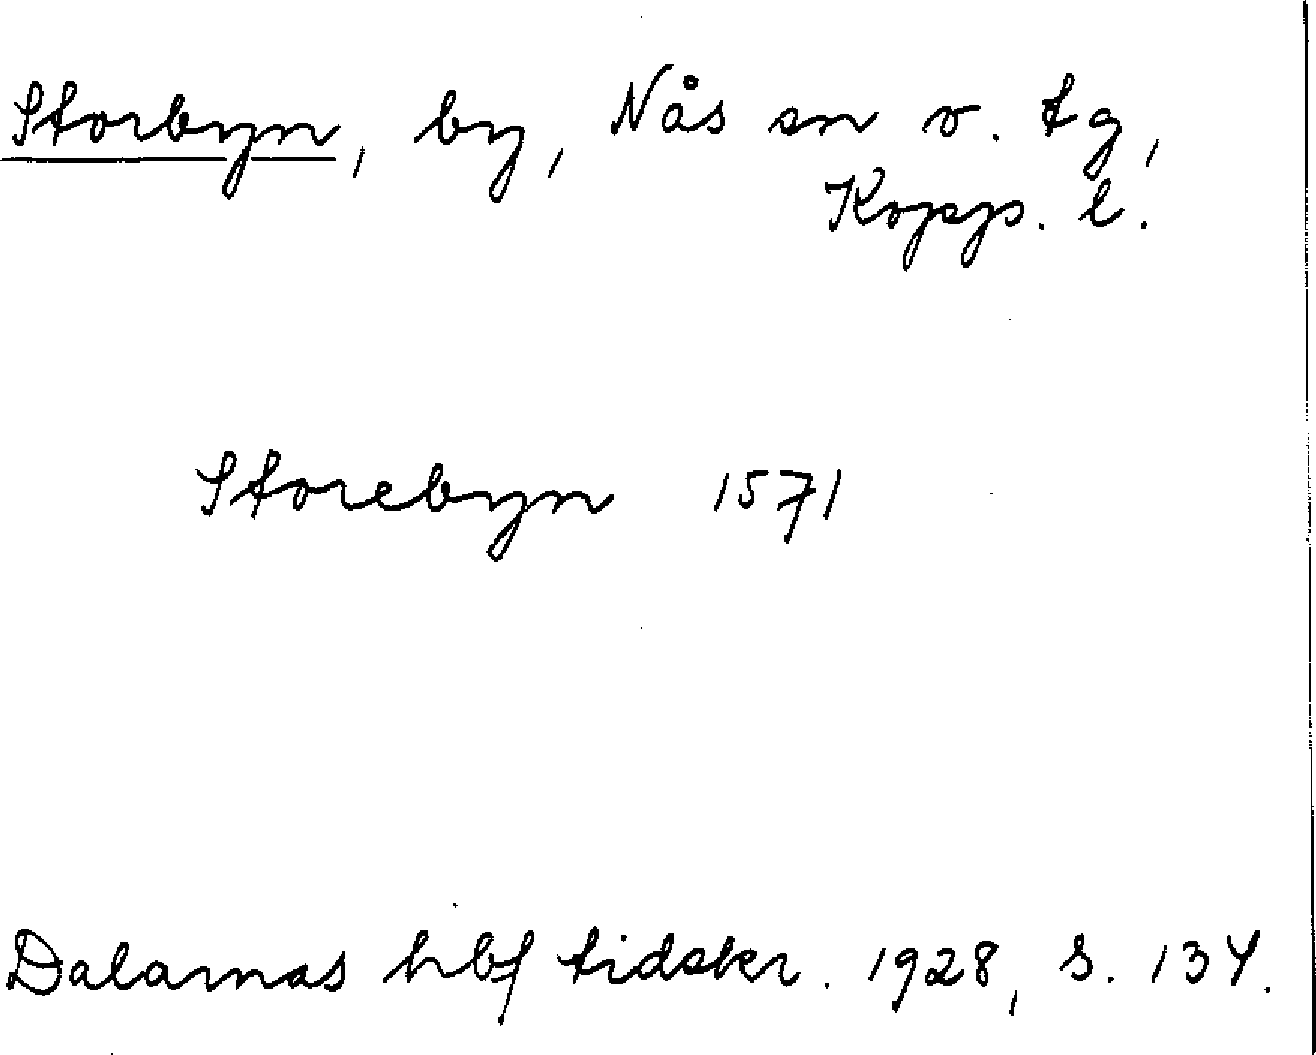 Storbyn, by, Nås sn o. tg,
Kopp. l.
Storebyn 1571
Dalarnas hbf tidskr. 1928, s. 134.